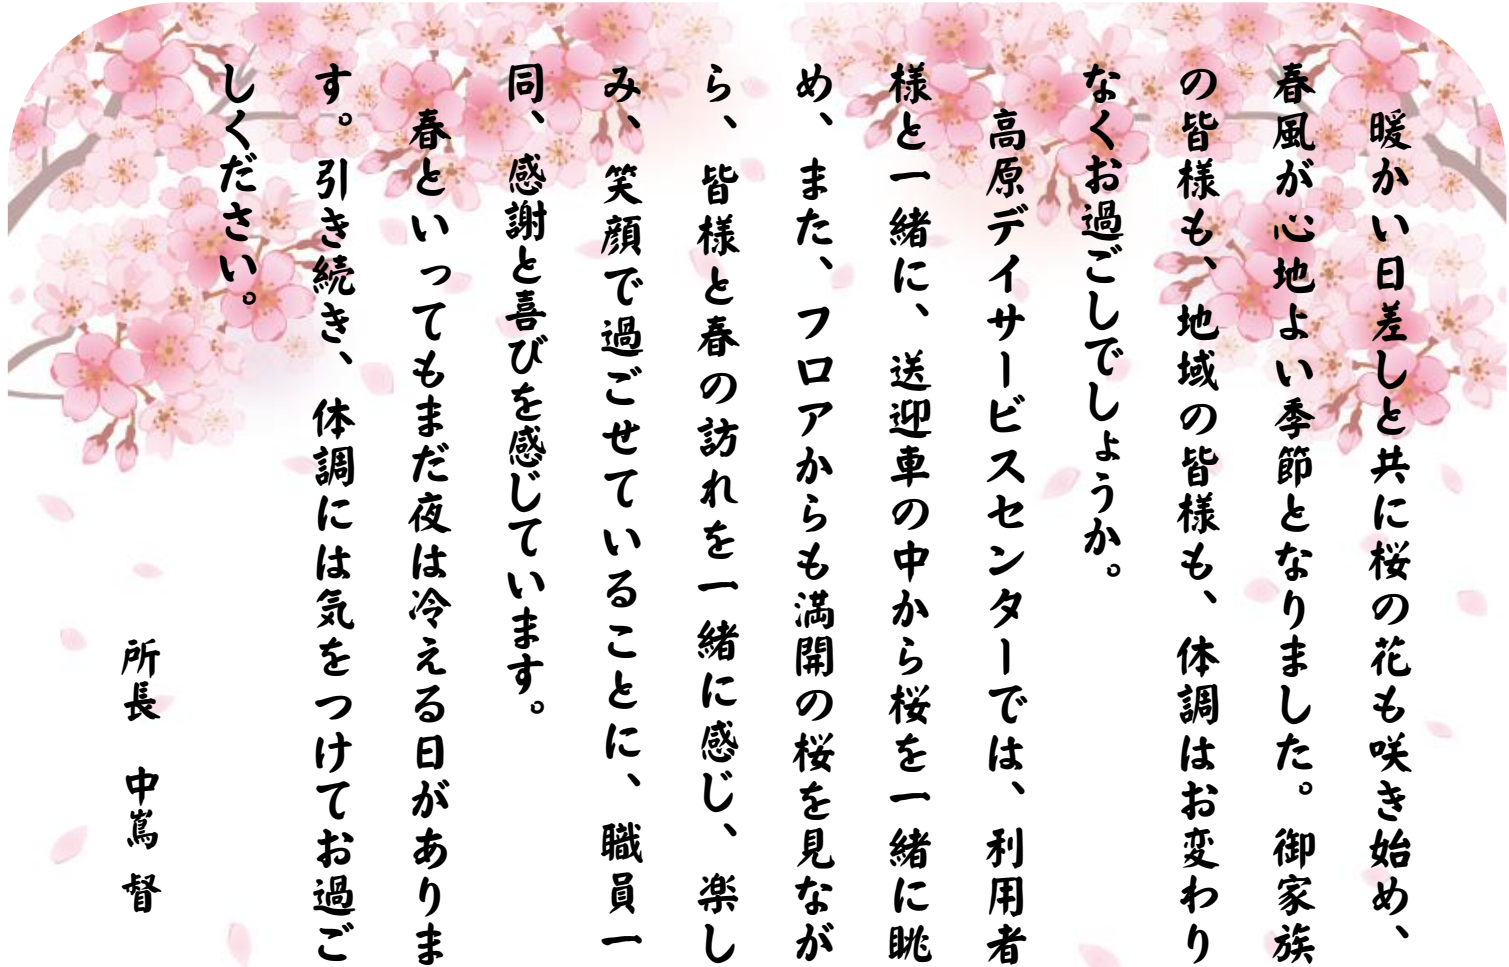 暖かい日差しと共に桜の花も咲き始め、
春風が心地よい季節となりました。御家族
の皆様も、地域の皆様も、体調はお変わり
なくお過ごしでしょうか。
高原デイサービスセンターでは、利用者
様と一緒に、送迎車の中から桜を一緒に眺
め、また、フロアからも満開の桜を見なが
ら、皆様と春の訪れを一緒に感じ、楽し
み、笑顔で過ごせていることに、職員一
同、感謝と喜びを感じています。
春といってもまだ夜は冷える日がありま
す。引き続き、体調には気をつけてお過ご
しください。
所長　中嶌　督